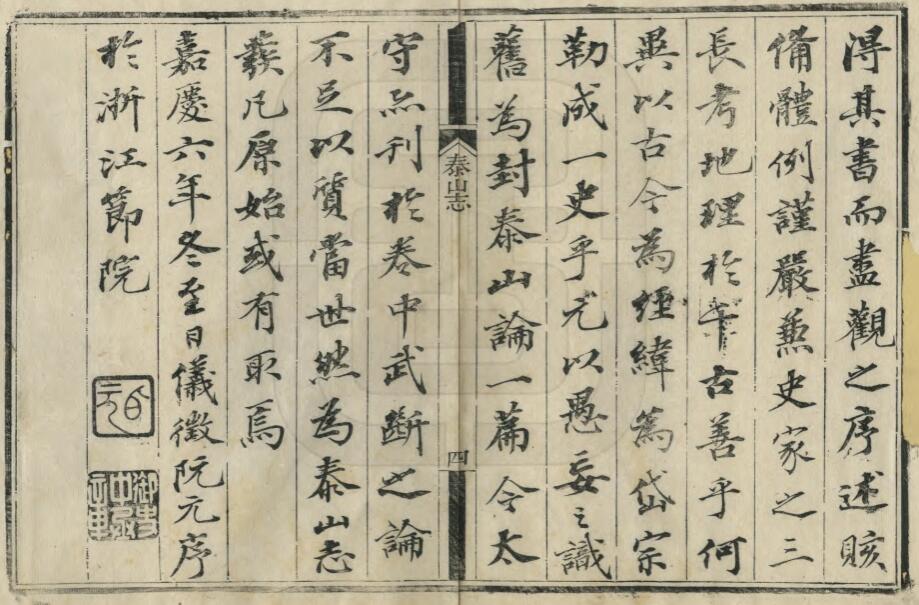 得其書而盡觀之序述賅
備體例謹嚴兼史家之三
長考地理於千古善乎何
異以古今為經緯為岱宗
勒成一史乎元以愚妄之識
舊為封泰山論一篇今太
泰山志
四
守亦刊於卷中武斷之論
不足以質當世然為泰山志
發凡原始或有取焉
嘉慶六年冬至日儀徵阮元序
於浙江節院